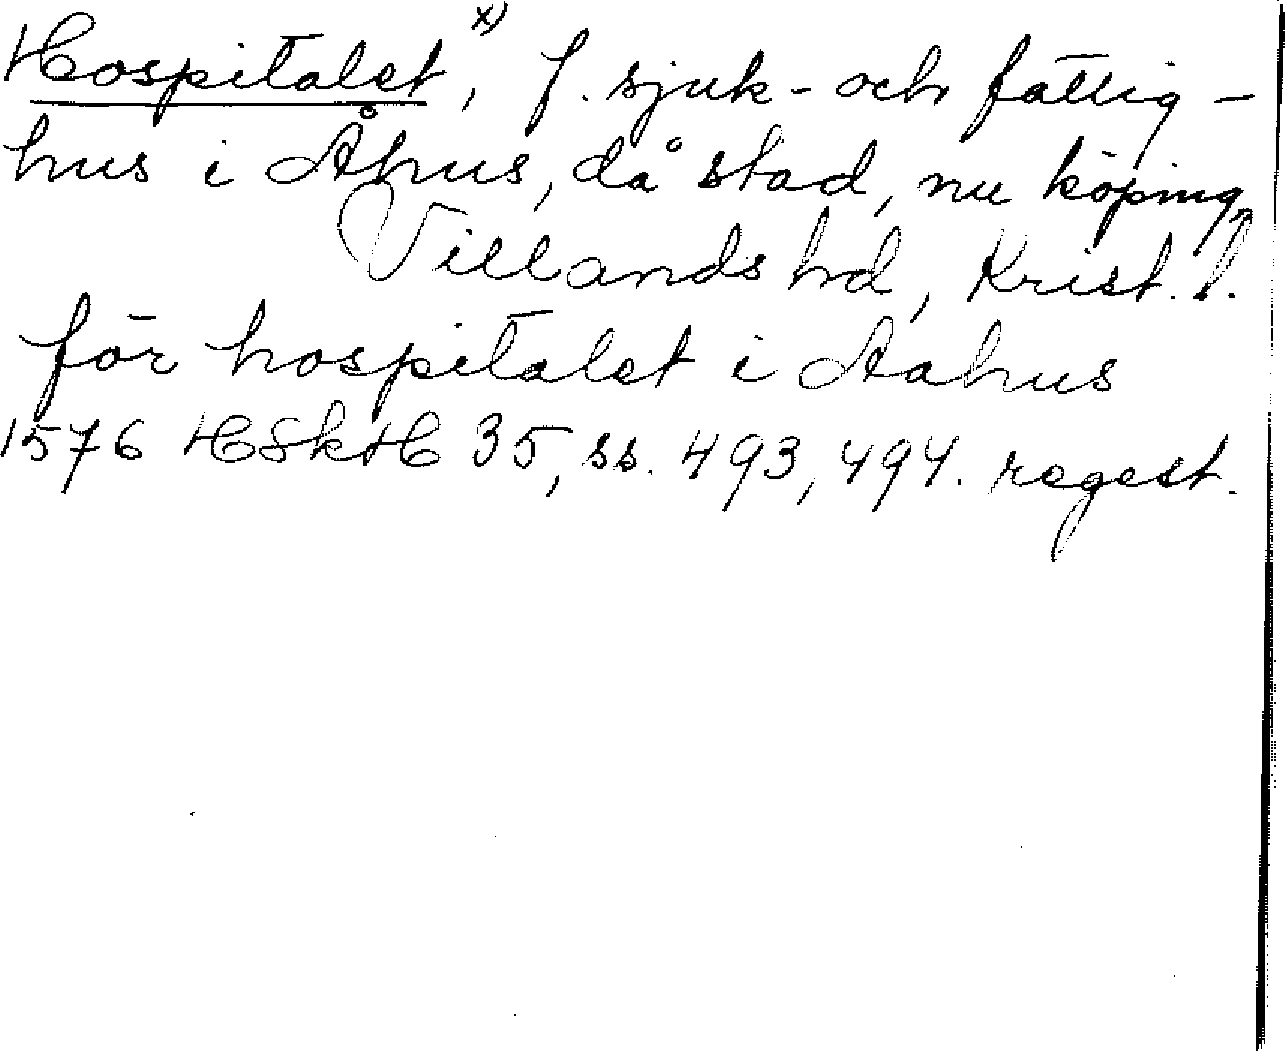 Hospitalet,ˣ⁾ f. sjuk- och fattig-
hus i Åhus, då stad, nu köping,
Villands hd, Krist. l.
för hospitalet i Aahus
1576 HSkH 35, ss. 493, 494. regest.